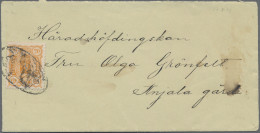 Häradshöfdingskan
Fru Olga Grönfelt
Anjala gård